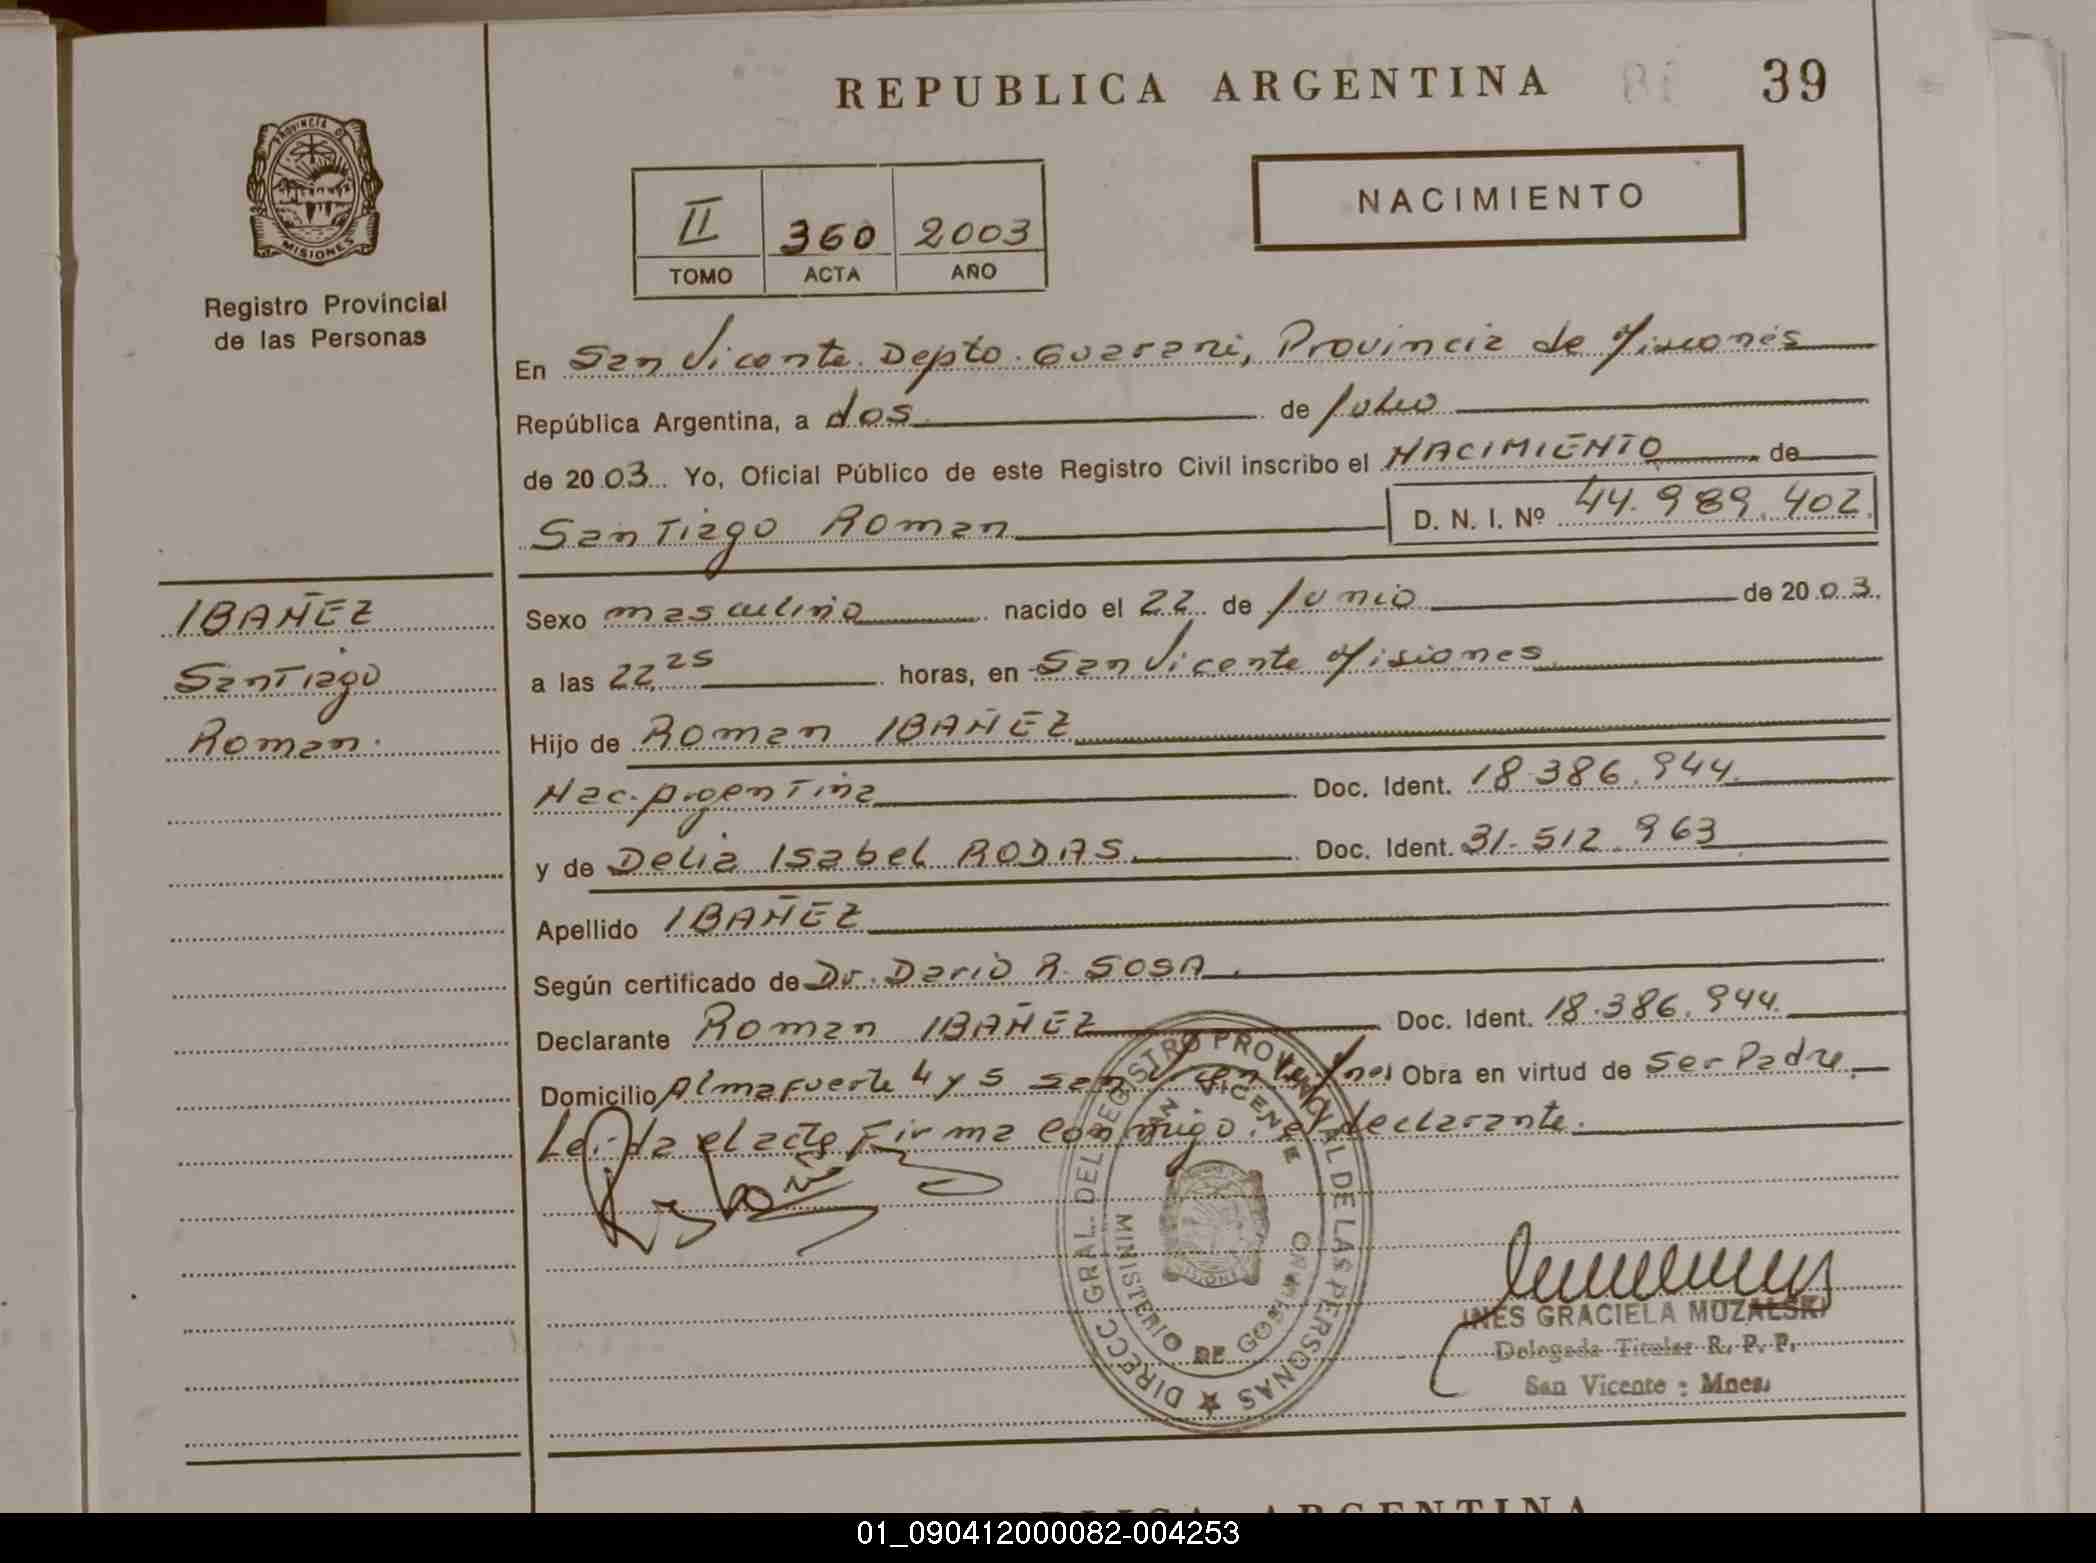 REPUBLICA ARGENTINA 39
PROVINCIA DE
MISIONES
Registro Provincial
de las Personas
II 360 2003
TOMO ACTA AÑO
NACIMIENTO
En San Vicente Depto. Guarani, Provincia de Misiones
República Argentina, a dos de Julio
de 2003 Yo, Oficial Público de este Registro Civil inscribo el NACIMIENTO de
Santiago Roman D. N. I. Nº 44.989.402
IBAÑEZ
Santiago
Roman.
Sexo masculino nacido el 22 de Junio de 2003.
a las 22,25 horas, en San Vicente Misiones
Hijo de Roman IBAÑEZ
Nac. Argentina Doc. Ident. 18.386.944.
y de Delia Isabel RODAS. Doc. Ident. 31.512.963
Apellido IBAÑEZ
Según certificado de Dr. Dario R. SOSA.
Declarante Roman IBAÑEZ Doc. Ident. 18.386.944.
Domicilio Almafuerte 4 y 5 San Vicente Mnes Obra en virtud de ser Padre.
Leida el acta Firma conmigo el declarante.
DIRECC GRAL. DEL REGISTRO PROVINCIAL DE LAS PERSONAS
SAN VICENTE
MINISTERIO DE GOBIERNO
MISIONES
INES GRACIELA MUZALSKI
Delegada Titular R. P. P.
San Vicente : Mnes.
REPUBLICA ARGENTINA
01_090412000082-004253